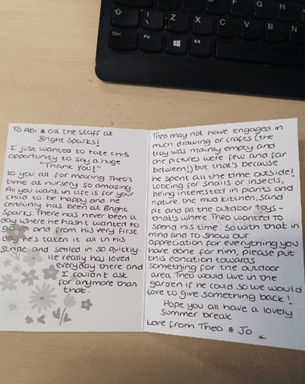 To Abi & all the staff at
Bright Sparks!
I just wanted to take this
opportunity to say a huge
"Thank you!"
to you all for making Theo's
time at nursery so amazing.
All you want in life is for your
child to be happy and he
certainly has been at Bright
Sparks. There has never been a
day where he hasn't wanted to
go in and from his very first
day he's taken it all in his
stride and settled in so quickly.
He really has loved
everyday there and
I couldn't ask
for anymore than
that.
Theo may not have engaged in
much drawing or crafts (the
tray was mainly empty and
the pictures were few and far
between!) but that's because
he spent all the time outside!
Looking for snails or insects,
being interested in plants and
nature, the mud kitchen, sand
pit and all the outdoor toys -
that's where Theo wanted to
spend his time. So with that in
mind and to show our
appreciation for everything you
have done for him, please put
this donation towards
something for the outdoor
area. Theo would live in the
garden if he could so we would
love to give something back!
Hope you all have a lovely
Summer break
Love from Theo & Jo
x
Z
X
C
V
Ctrl
Fn
Alt